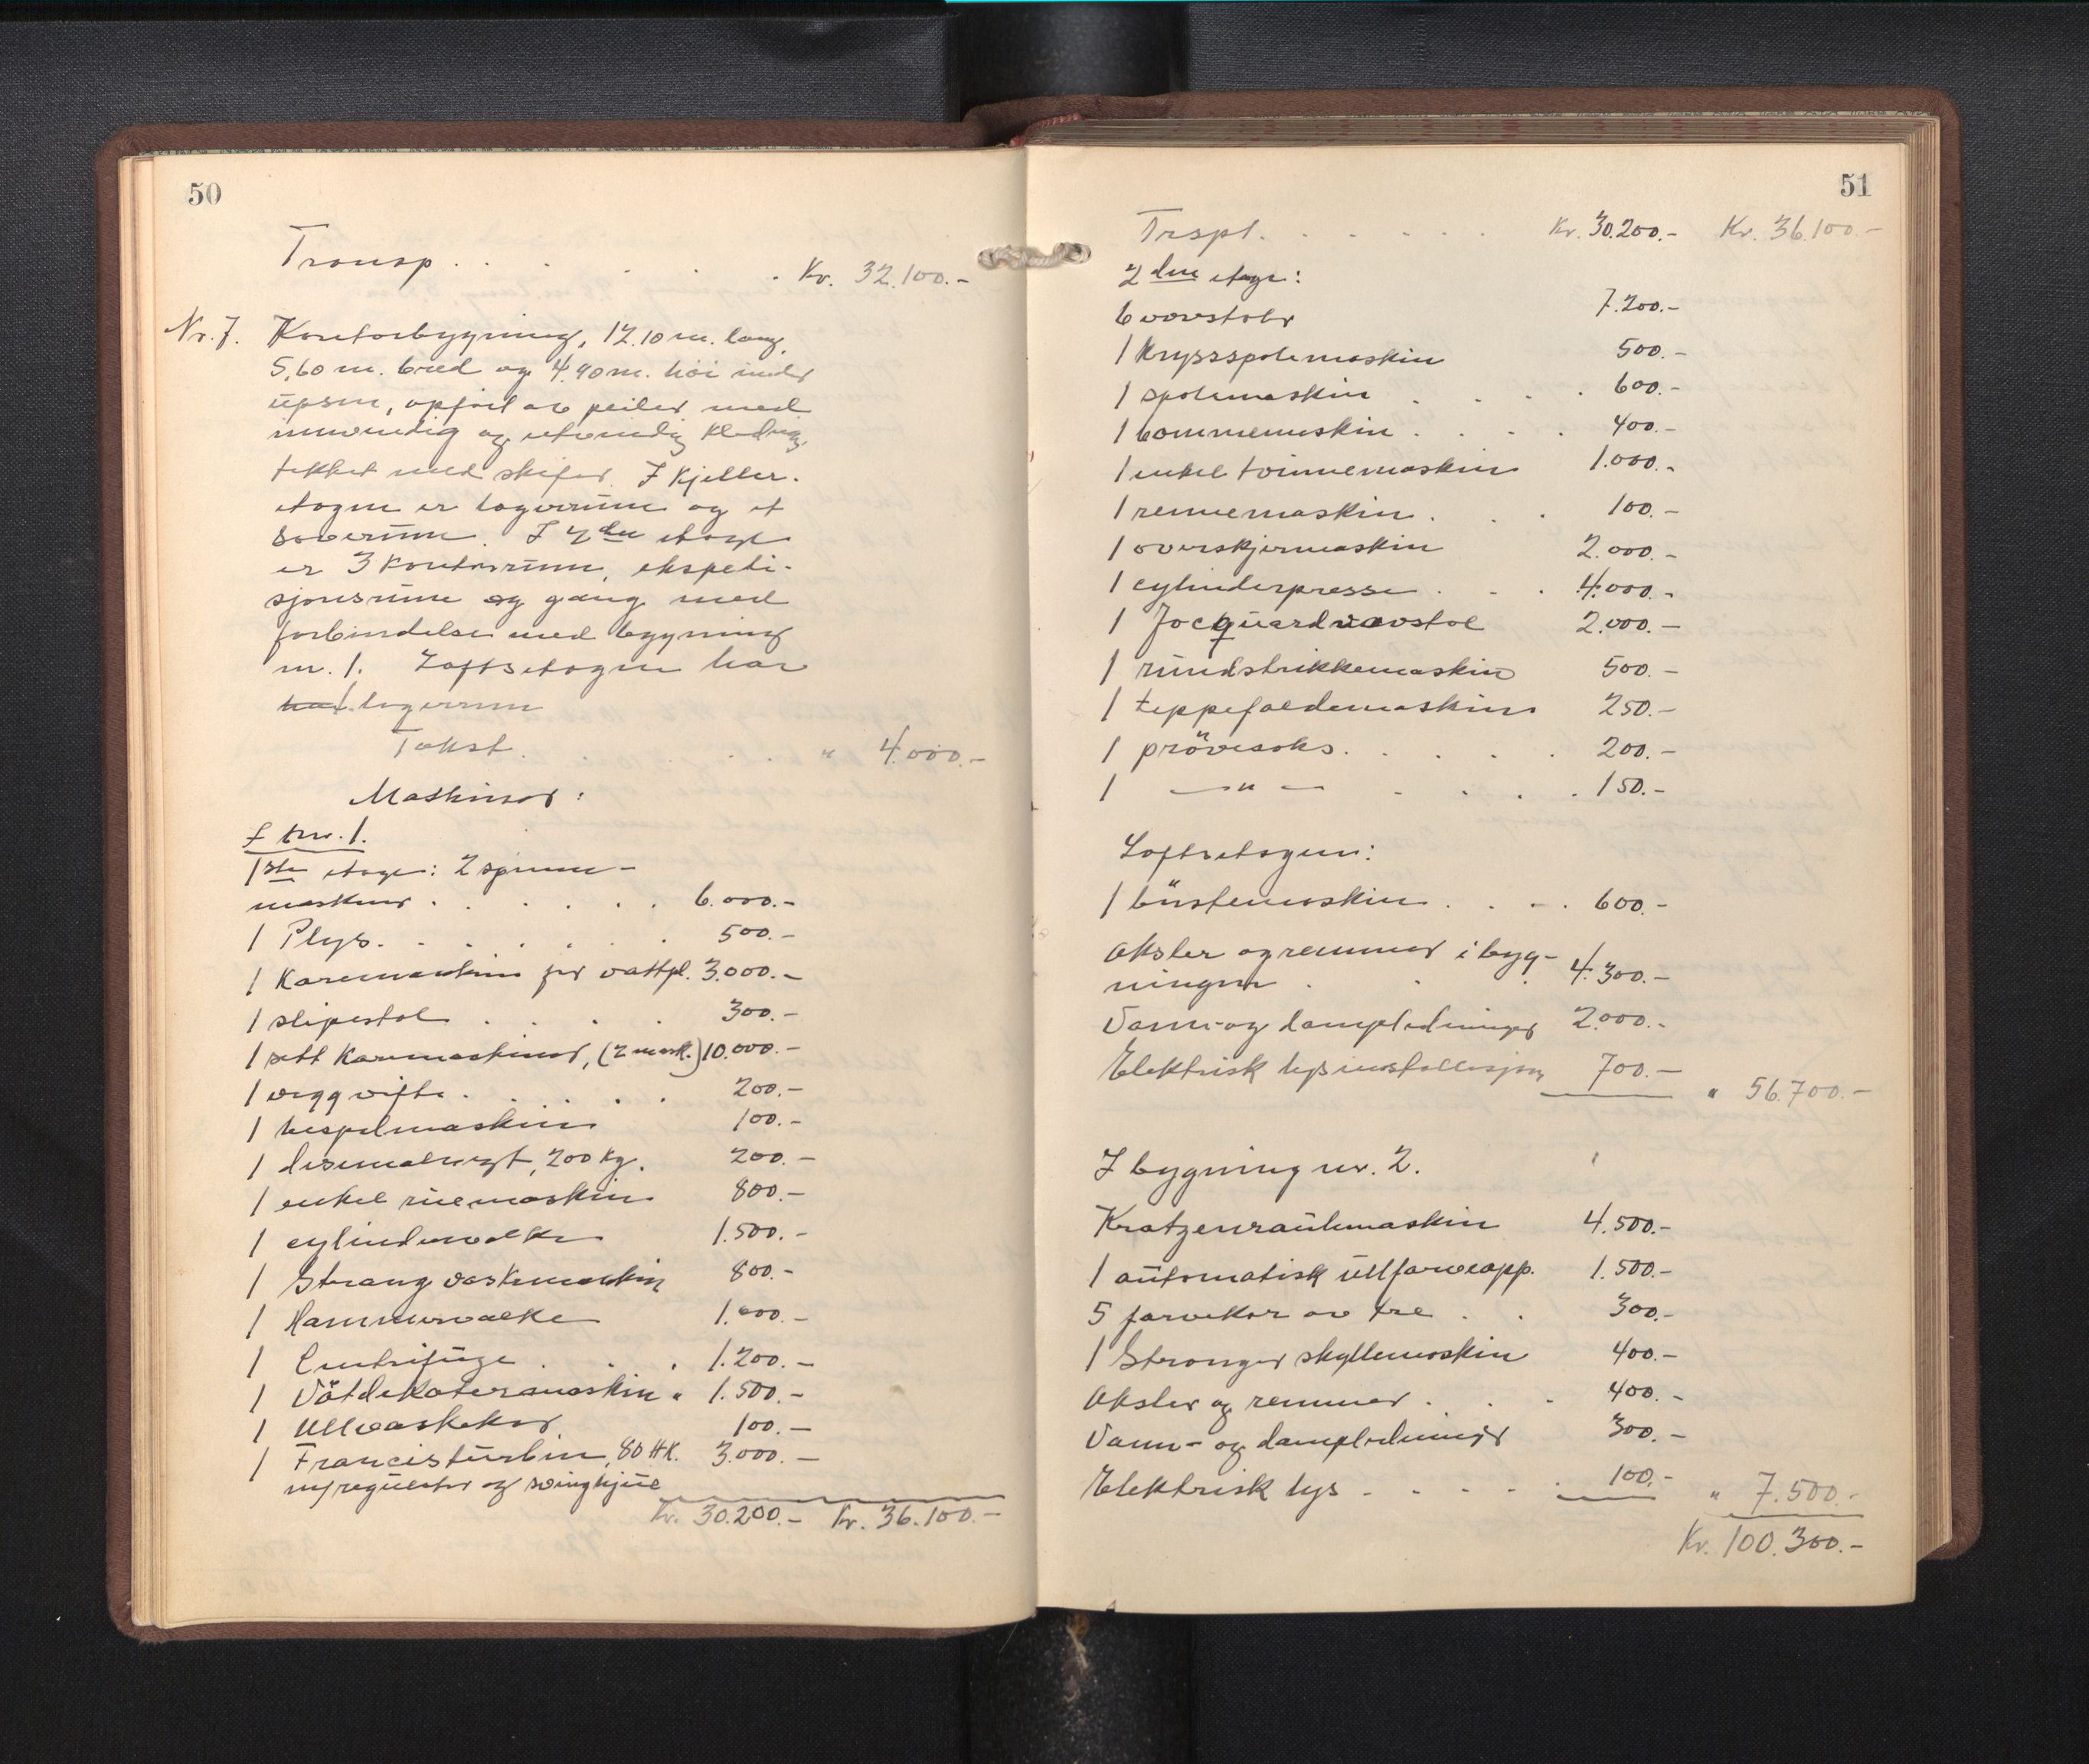 50
Transp. . . . . . Kr. 32.100.-
Nr. 7. Kontorbygning, 12.10 m. lang,
5,60 m. bred og 4,90 m. höi under
upsen, opfört av peiler med
innvendig og utvendig kledning,
tekket med skifer. I kjeller-
etagen er lagerrum og et
soverum. I 2den etage
er 3 kontorrum, ekspedi-
sjonsrum og gang med
forbindelse med bygning
nr. 1. Loftsetagen har
har lagerrum
Takst. . . . . " 4.000.-
Maskiner:
I bnr. 1.
1ste etage: 2 spinne-
maskiner . . . . . . 6.000.-
1 Plys. . . . . . . 500.-
1 Karemaskin for vattpl. 3.000.-
1 slipestol . . . . 300.-
1 sett Karemaskiner, (2 mask.) 10.000.-
1 veggvifte . . . . . 200.-
1 hespelmaskin 100.-
1 desimalvegt, 200 kg. 200.-
1 enkel ruemaskin 800.-
1 cylindervalke 1.500.-
1 Strang vaskemaskin 800.-
1 Hammervalke 1.000.-
1 Centrifuge . . . 1.200.-
1 Våtdekatermaskin " 1.500.-
1 Ullvaskekar 100.-
1 Francisturbin, 80 HK. 3.000.-
m/regulator og svinghjul
Kr. 30.200.- Kr. 36.100.-
51
Trspt. . . . . . . Kr. 30.200.- Kr. 36.100.-
2den etage:
6 vevstoler 7.200.-
1 krysspolemaskin 500.-
1 spolemaskin . . . . 600.-
1 bommemaskin . . . . 400.-
1 enkel tvinnemaskin 1.000.-
1 rennemaskin . . . 100.-
1 overskjermaskin 2.000.-
1 cylinderpresse . . . 4.000.-
1 Jacquardvevstol 2.000.-
1 rundstrikkemaskin 500.-
1 teppefoldemaskin 250.-
1 prövesaks. . . . . 200.-
1 — " — . . . . 150.-
Loftsetagen:
1 börstemaskin . . . . 600.-
Aksler og remmer i byg-
ningen . . . 4.300.-
Vann- og dampledninger 2.000.-
Elektrisk lysinstallasjon 700.-
" 56.700.-
I bygning nr. 2.
Kratzenrauhmaskin 4.500.-
1 automatisk ullfarveapp. 1.500.-
5 farvekar av tre . . 300.-
1 Stranger skyllemaskin 400.-
Aksler og remmer . . . 400.-
Vann- og dampledninger 300.-
Elektrisk lys . . . . . 100.- " 7.500.-
Kr. 100.300.-